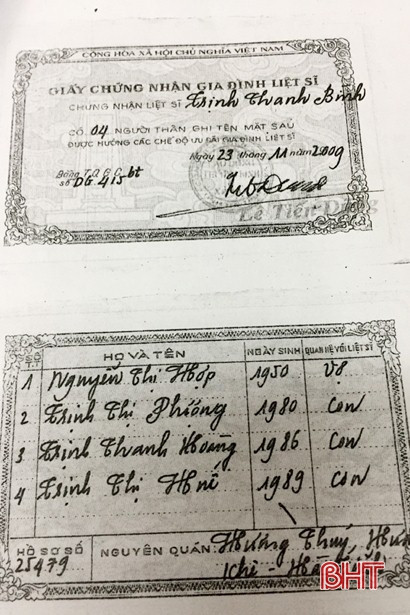 CỘNG HÒA XÃ HỘI CHỦ NGHĨA VIỆT NAM
GIẤY CHỨNG NHẬN GIA ĐÌNH LIỆT SĨ
CHỨNG NHẬN LIỆT SĨ Trịnh Thanh Bình
CÓ 04 NGƯỜI THÂN GHI TÊN MẶT SAU
ĐƯỢC HƯỞNG CÁC CHẾ ĐỘ ƯU ĐÃI GIA ĐÌNH LIỆT SĨ
Ngày 23 tháng 11 năm 2009
Bằng T.Q.G.C
số DG 415 bt
Lê Tiến
SỐ T.T HỌ VÀ TÊN NGÀY SINH QUAN HỆ VỚI LIỆT SĨ
1 Nguyễn Thị Hớp 1950 Vợ
2 Trịnh Thị Phương 1980 Con
3 Trịnh Thanh Hoàng 1986 Con
4 Trịnh Thị Huế 1989 Con
HỒ SƠ SỐ 25479 NGUYÊN QUÁN: Hương Thuỷ,
Khê - Hà
BHT